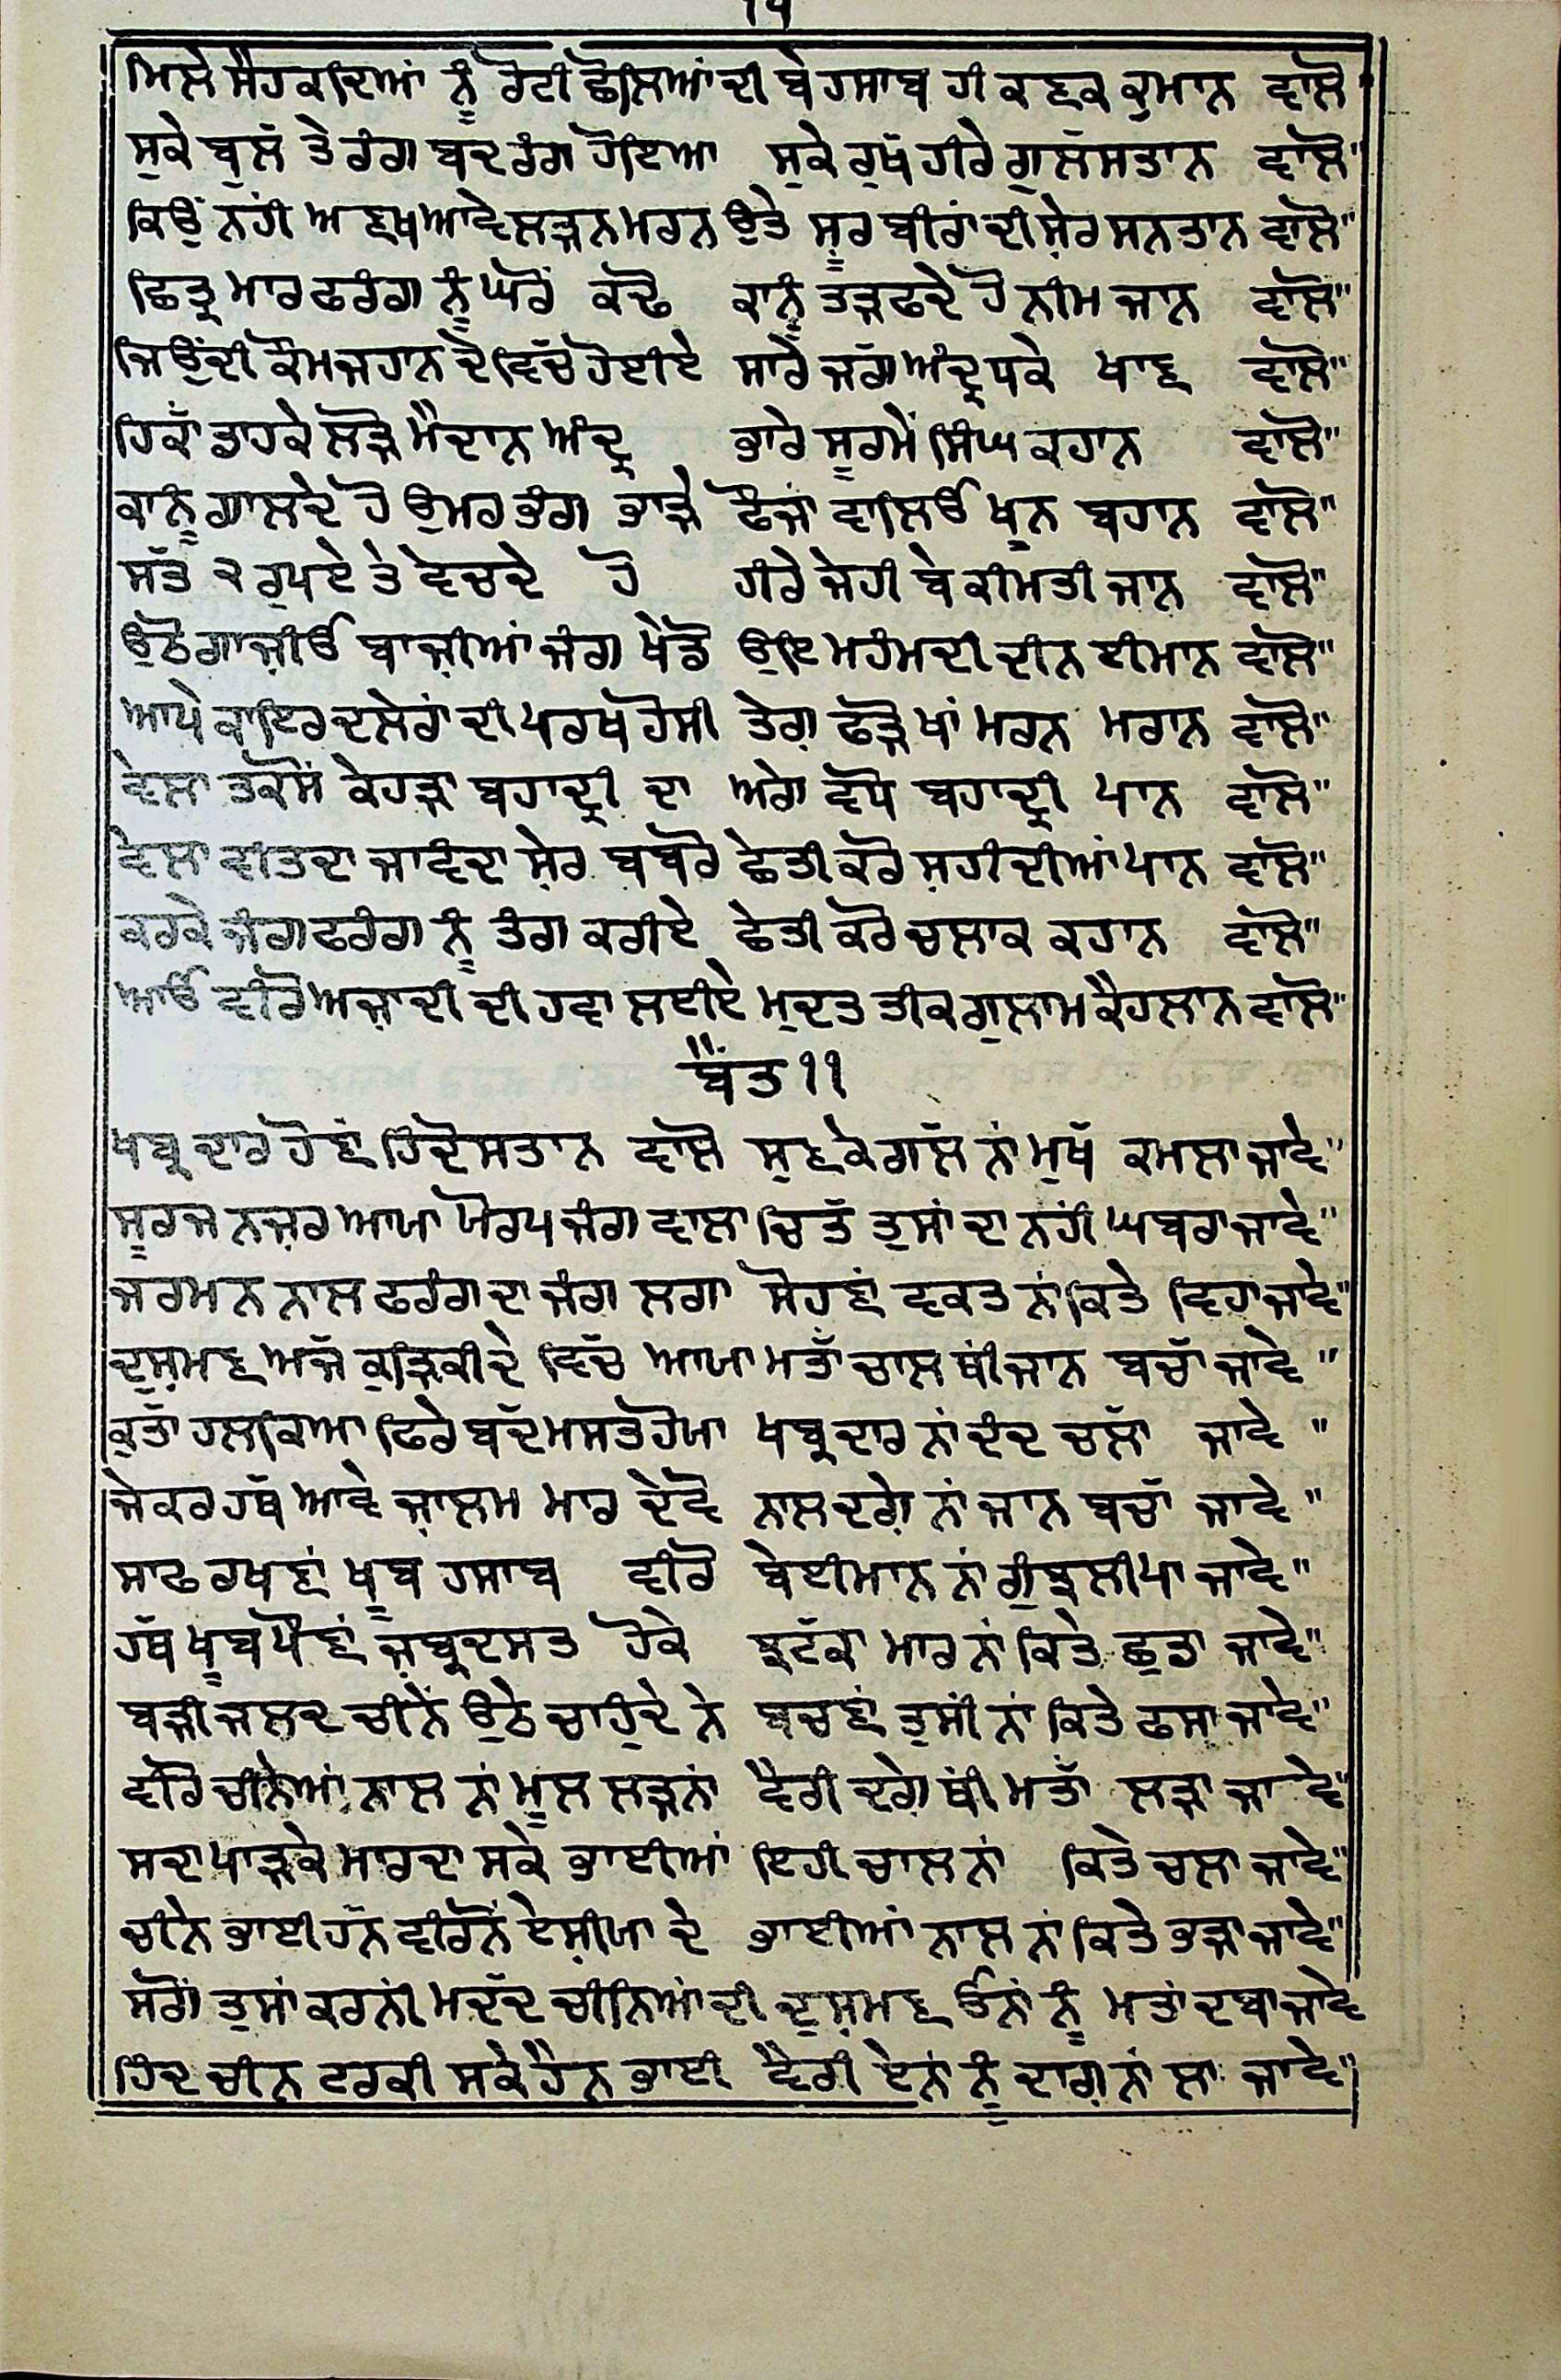 ੧੫
ਮਿਲੇ ਸੈਹਕਦਿਆਂ ਨੂੰ ਰੋਟੀ ਛੋਲਿਆਂ ਦੀ ਬੇਹਸਾਬ ਹੀ ਕਣਕ ਕੁਮਾਨ ਵਾਲੋ"
ਸੁਕੇ ਬੁਲੱ ਤੇ ਰੰਗ ਬਦਰੰਗ ਹੋਇਆ ਸੁਕੇ ਰੁਖੱ ਹੀਰੇ ਗੁਲੱਸਤਾਨ ਵਾਲੋ"
ਕਿਉਂ ਨਹੀਂ ਅਣਖ ਆਵੇ ਲੜਨ ਮਰਨ ਉਤੇ ਸੂਰਬੀਰਾਂ ਦੀ ਸ਼ੇਰ ਸਨਤਾਨ ਵਾਲੋ"
ਛਿਤ੍ਰ ਮਾਰ ਫਰੰਗ ਨੂੰ ਘਰੋਂ ਕਢੋ ਕਾਨੂੰ ਤੜਫਦੇ ਹੋ ਨੀਮ ਜਾਨ ਵਾਲੋ"
ਜਿਉਂਦੀ ਕੌਮ ਜਹਾਨ ਦੇ ਵਿਚੱ ਹੋਈਏ ਸਾਰੇ ਜਗੱ ਅੰਦ੍ਰ ਧਕੇ ਖਾਣ ਵਾਲੋ"
ਹਿਕਾਂ ਡਾਹਕੇ ਲੜੋ ਮੈਦਾਨ ਅੰਦ੍ਰ ਭਾਰੇ ਸੂਰਮੇਂ ਸਿੰਘ ਕਹਾਨ ਵਾਲੋ"
ਕਾਨੂੰ ਗਾਲਦੇ ਹੋ ਉਮਰ ਭੰਗ ਭਾੜੇ ਫੌਜਾਂ ਵਾਲਿਓ ਖੂਨ ਬਹਾਨ ਵਾਲੋ"
ਸਤੱ ੨ ਰੁਪਏ ਤੇ ਵੇਚਦੇ ਹੋ ਹੀਰੇ ਜੇਹੀ ਬੇਕੀਮਤੀ ਜਾਨ ਵਾਲੋ"
ਉਠੋ ਗਾਜ਼ੀਓ ਬਾਜ਼ੀਆਂ ਜੰਗ ਖੇਡੋ ਉਇ ਮਹੰਮਦੀ ਦੀਨ ਈਮਾਨ ਵਾਲੋ"
ਆਪੇ ਕਾਇਰ ਦਲੇਰਾਂ ਦੀ ਪਰਖ ਹੋਸੀ ਤੇਗ਼ ਫੜੋ ਖਾਂ ਮਰਨ ਮਰਾਨ ਵਾਲੋ"
ਵੇਲਾ ਤਕੱਸੋਂ ਕੇਹੜਾ ਬਹਾਦ੍ਰੀ ਦਾ ਅਗੇ ਵੱਧੋ ਬਹਾਦ੍ਰੀ ਪਾਨ ਵਾਲੋ"
ਵੇਲਾ ਵੀਤਦਾ ਜਾਵੰਦਾ ਸ਼ੇਰ ਬਬਰੋ ਛੇਤੀ ਕਰੋ ਸ਼ਹੀਦੀਆਂ ਪਾਨ ਵਾਲੋ"
ਕਰਕੇ ਜੰਗ ਫਰੰਗ ਨੂੰ ਤੰਗ ਕਰੀਏ ਛੇਤੀ ਕਰੋ ਚਲਾਕ ਕਹਾਨ ਵਾਲੋ"
ਆਓ ਵੀਰੋ ਅਜ਼ਾਦੀ ਦੀ ਹਵਾ ਲਈਏ ਮੁਦਤ ਤੀਕ ਗੁਲਾਮ ਕੈਹਲਾਨ ਵਾਲੋ"
ਬੈਂਤ ੧੧
ਖਬ੍ਰਦਾਰ ਹੋਣਾਂ ਹਿੰਦੋਸਤਾਨ ਵਾਲੋ ਸੁਣਕੇ ਗਲੱ ਨਾਂ ਮੁਖੱ ਕਮਲਾ ਜਾਵੇ"
ਸੂਰਜ ਨਜ਼ਰ ਆਯਾ ਯੋਰਪ ਜੰਗ ਵਾਲਾ ਚਿਤੱ ਤੁਸਾਂ ਦਾ ਨਹੀਂ ਘਬਰਾ ਜਾਵੇ"
ਜਰਮਨ ਨਾਲ ਫਰੰਗ ਦਾ ਜੰਗ ਲਗਾ ਸੋਹਣਾਂ ਵਕਤ ਨਾਂ ਕਿਤੇ ਵਿਹਾ ਜਾਵੇ"
ਦੁਸ਼ਮਣ ਅਜੱ ਕੁੜਿਕੀ ਦੇ ਵਿਚੱ ਆਯਾ ਮਤਾਂ ਚਾਲ ਥੀਂ ਜਾਨ ਬਚਾੱ ਜਾਵੇ"
ਕੁਤਾੱ ਹਲਕਿਆ ਫਿਰੇ ਬਦੱਮਸਤ ਹੋਯਾ ਖਬ੍ਰਦਾਰ ਨਾਂ ਦੰਦ ਚਲਾੱ ਜਾਵੇ"
ਜੇਕਰ ਹਥੱ ਆਵੇ ਜ਼ਾਲਮ ਮਾਰ ਦੇਵੋ ਨਾਲ ਦਗ਼ੇ ਨਾਂ ਜਾਨ ਬਚਾੱ ਜਾਵੇ"
ਸਾਫ ਰਖਣਾਂ ਖੂਬ ਹਸਾਬ ਵੀਰੋ ਬੇਈਮਾਨ ਨਾਂ ਗੁੰਝਲੀ ਪਾ ਜਾਵੇ"
ਹਥੱ ਖੂਬ ਪੌਣਾਂ ਜ਼ਬ੍ਰਦਸਤ ਹੋਕੇ ਝਟੱਕਾ ਮਾਰ ਨਾਂ ਕਿਤੇ ਛੁਡਾ ਜਾਵੇ"
ਬੜੀ ਜਲਦ ਚੀਨੋਂ ਉਠੇ ਚਾਹੁੰਦੇ ਨੇ ਬਚਣਾਂ ਤੁਸੀਂ ਨਾਂ ਕਿਤੇ ਫਸਾ ਜਾਵੇ"
ਵੀਰੋ ਚੀਨੇਆਂ ਨਾਲ ਨਾਂ ਮੂਲ ਲੜਨਾਂ ਵੈਰੀ ਦਗ਼ੇ ਥੀਂ ਮਤਾੱ ਲੜਾ ਜਾਵੇ"
ਸਦਾ ਪਾੜਕੇ ਮਾਰਦਾ ਸਕੇ ਭਾਈਆਂ ਇਹੀ ਚਾਲ ਨਾਂ ਕਿਤੇ ਚਲਾ ਜਾਵੇ"
ਚੀਨੇ ਭਾਈ ਹਨ ਵੀਰਨੋਂ ਏਸ਼ੀਯਾ ਦੇ ਭਾਈਆਂ ਨਾਲ ਨਾਂ ਕਿਤੇ ਭੜਾ ਜਾਵੇ"
ਸਗੋਂ ਤੁਸਾਂ ਕਰਨੀਂ ਮਦੱਦ ਚੀਨਿਆਂ ਦੀ ਦੁਸ਼ਮਣ ਓਨਾਂ ਨੂੰ ਮਤਾਂ ਦਬਾ ਜਾਵੇ
ਹਿੰਦ ਚੀਨ ਟਰਕੀ ਸਕੇ ਹੈਨ ਭਾਈ ਵੈਰੀ ਏਨਾਂ ਨੂੰ ਦਾਗ਼ ਨਾਂ ਲਾ ਜਾਵੇ"